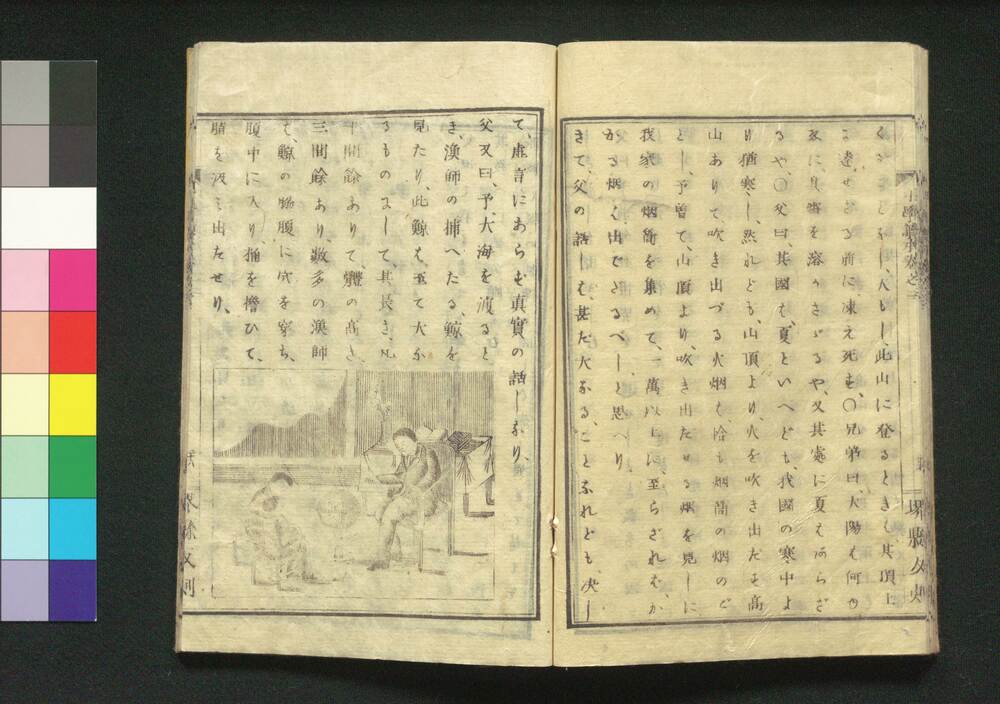 此山に登るときも、其頂上
に達せざる前に、凍え死す、〇兄弟曰、大陽も何の
故に、其雪を溶かさざるや、又其處に夏もあらざ
るや、〇父曰、其國も、夏といへども、我國の寒中よ
り猶寒し、然れども、山頂より、火を吹き出だす高
山ありて、吹き出づる火烟も、恰も烟筒の烟のご
とし、予曾て、山頂より、吹き出だせる烟を見しに
我家の烟筒を集めて、一萬以上に至らざれば、か
かる烟も出でざるべしと思へり
きて、父の話しも、甚だ大なることなれども、决し
て、虚言にあらず、真實の話しなり、
父又曰、予、大海を渡ると
き、漁師の捕へたる、鯨を
見たり、此鯨も、至て大な
るものにして、其長さ、凡
十間餘ありて、軆の高さ、
三間餘あり、數多の漁師
も、鯨の脇腹に穴を穿ち、
腹中に入り、桶を擔ひて、
脂を汲み出だせり、